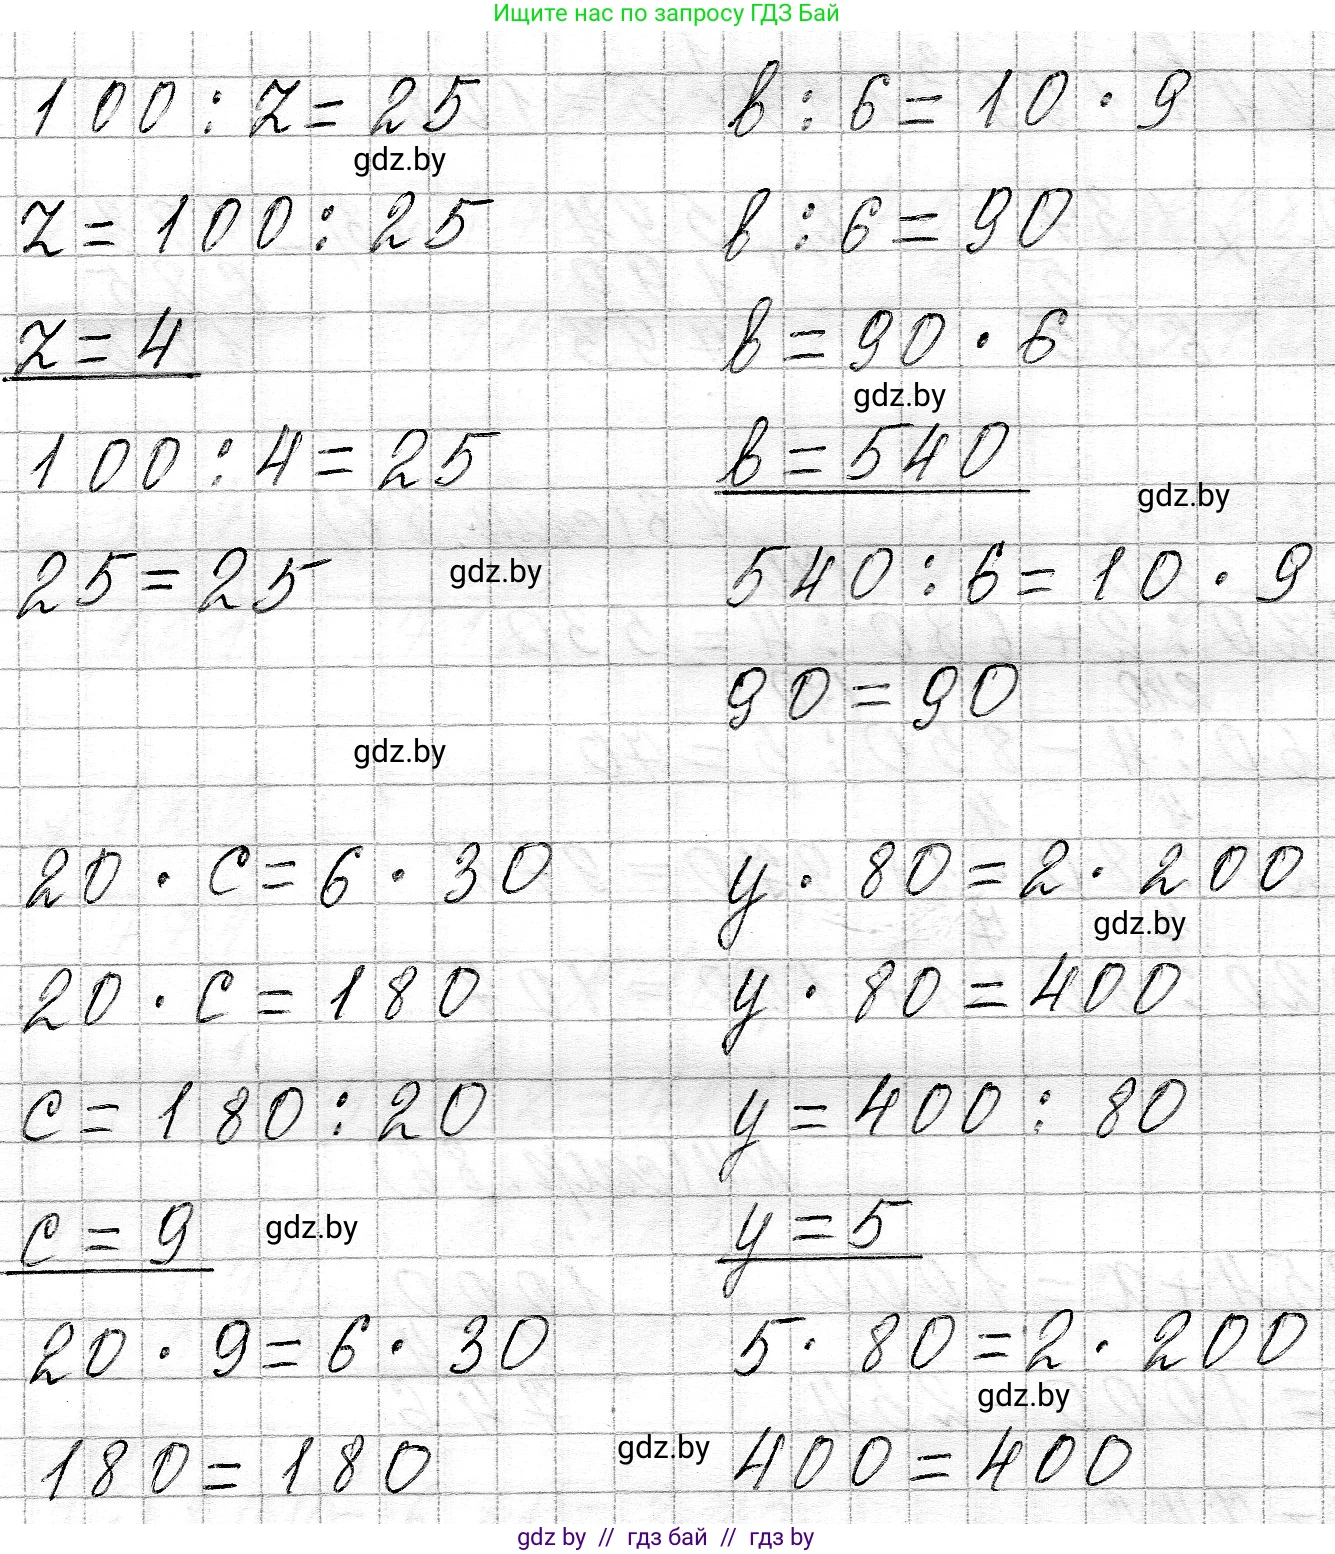 Ищите нас по запросу ГДЗ Бай
100 : z = 25
gdz.by
z = 100 : 25
z = 4
100 : 4 = 25
25 = 25
gdz.by
в : 6 = 10 · 9
в : 6 = 90
в = 90 · 6
gdz.by
в = 540
gdz.by
540 : 6 = 10 · 9
90 = 90
gdz.by
20 · c = 6 · 30
20 · c = 180
c = 180 : 20
c = 9
gdz.by
20 · 9 = 6 · 30
180 = 180
y · 80 = 2 · 200
gdz.by
y · 80 = 400
y = 400 : 80
y = 5
5 · 80 = 2 · 200
gdz.by
gdz.by
400 = 400
gdz by // гдз бай // гдз by